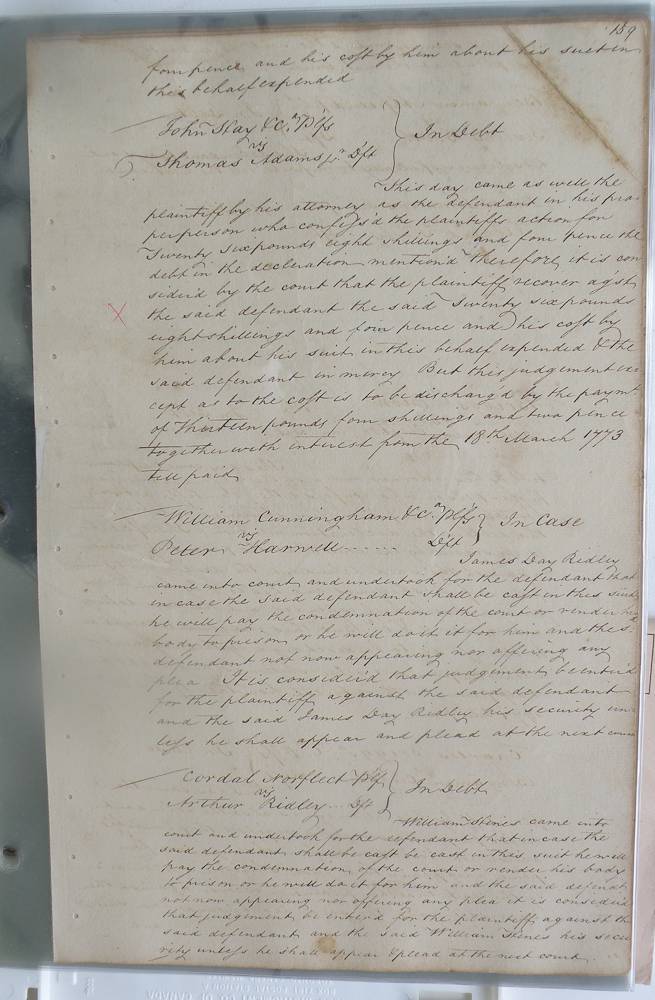 189
four pence and his cost by him about his suit in
this behalf expended
John Hay & Co. Plfs
vs In Debt
Thomas Adams jr. Dft
This day came as well the
plaintiff by his attorney as the defendant in his pro
per person who confess'd the plaintiffs action for
Twenty six pounds eight shillings and four pence the
debt in the decleration mention'd therefore it is con
sider'd by the court that the plaintiff recover agst
the said defendant the said Twenty six pounds
eight shillings and four pence and his cost by
him about his suit in this behalf expended & the
said defendant in mercy But this judgement ex
cept as to the cost is to be discharg'd by the paymt
of Thirteen pounds four shillings and two pence
together with interest from the 18th March 1773
till paid
William Cunningham & Co. Plfs
vs In Case
Peter Harwell ...... Dft
James Day Ridley
came into court and undertook for the defendant that
in case the said defendant shall be cast in this suit
he will pay the condemnation of the court or render his
body to prison or he will do it it for him and the sd
defendant not now appearing nor offering any
plea It is consider'd that judgement be enter'd
for the plaintiff against the said defendant
and the said James Day Ridley his security un
less he shall appear and plead at the next court
Cordal Norfleet Plf
vs In Debt
Arthur Ridley ... Dft
William Hines came into
court and undertook for the defendant that in case the
said defendant shall be cast be cast in this suit he will
pay the condemnation of the court or render his body
to prison or he will do it for him and the said defendt
not now appearing nor offering any plea it is consider'd
that judgement be enter'd for the plaintiff against the
said defendant and the said William Hines his secu
rity unless he shall appear & plead at the next court